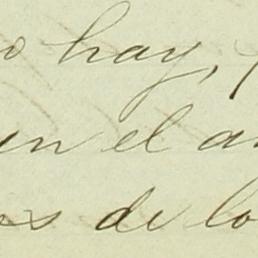 o hay,
un el a
s de lo